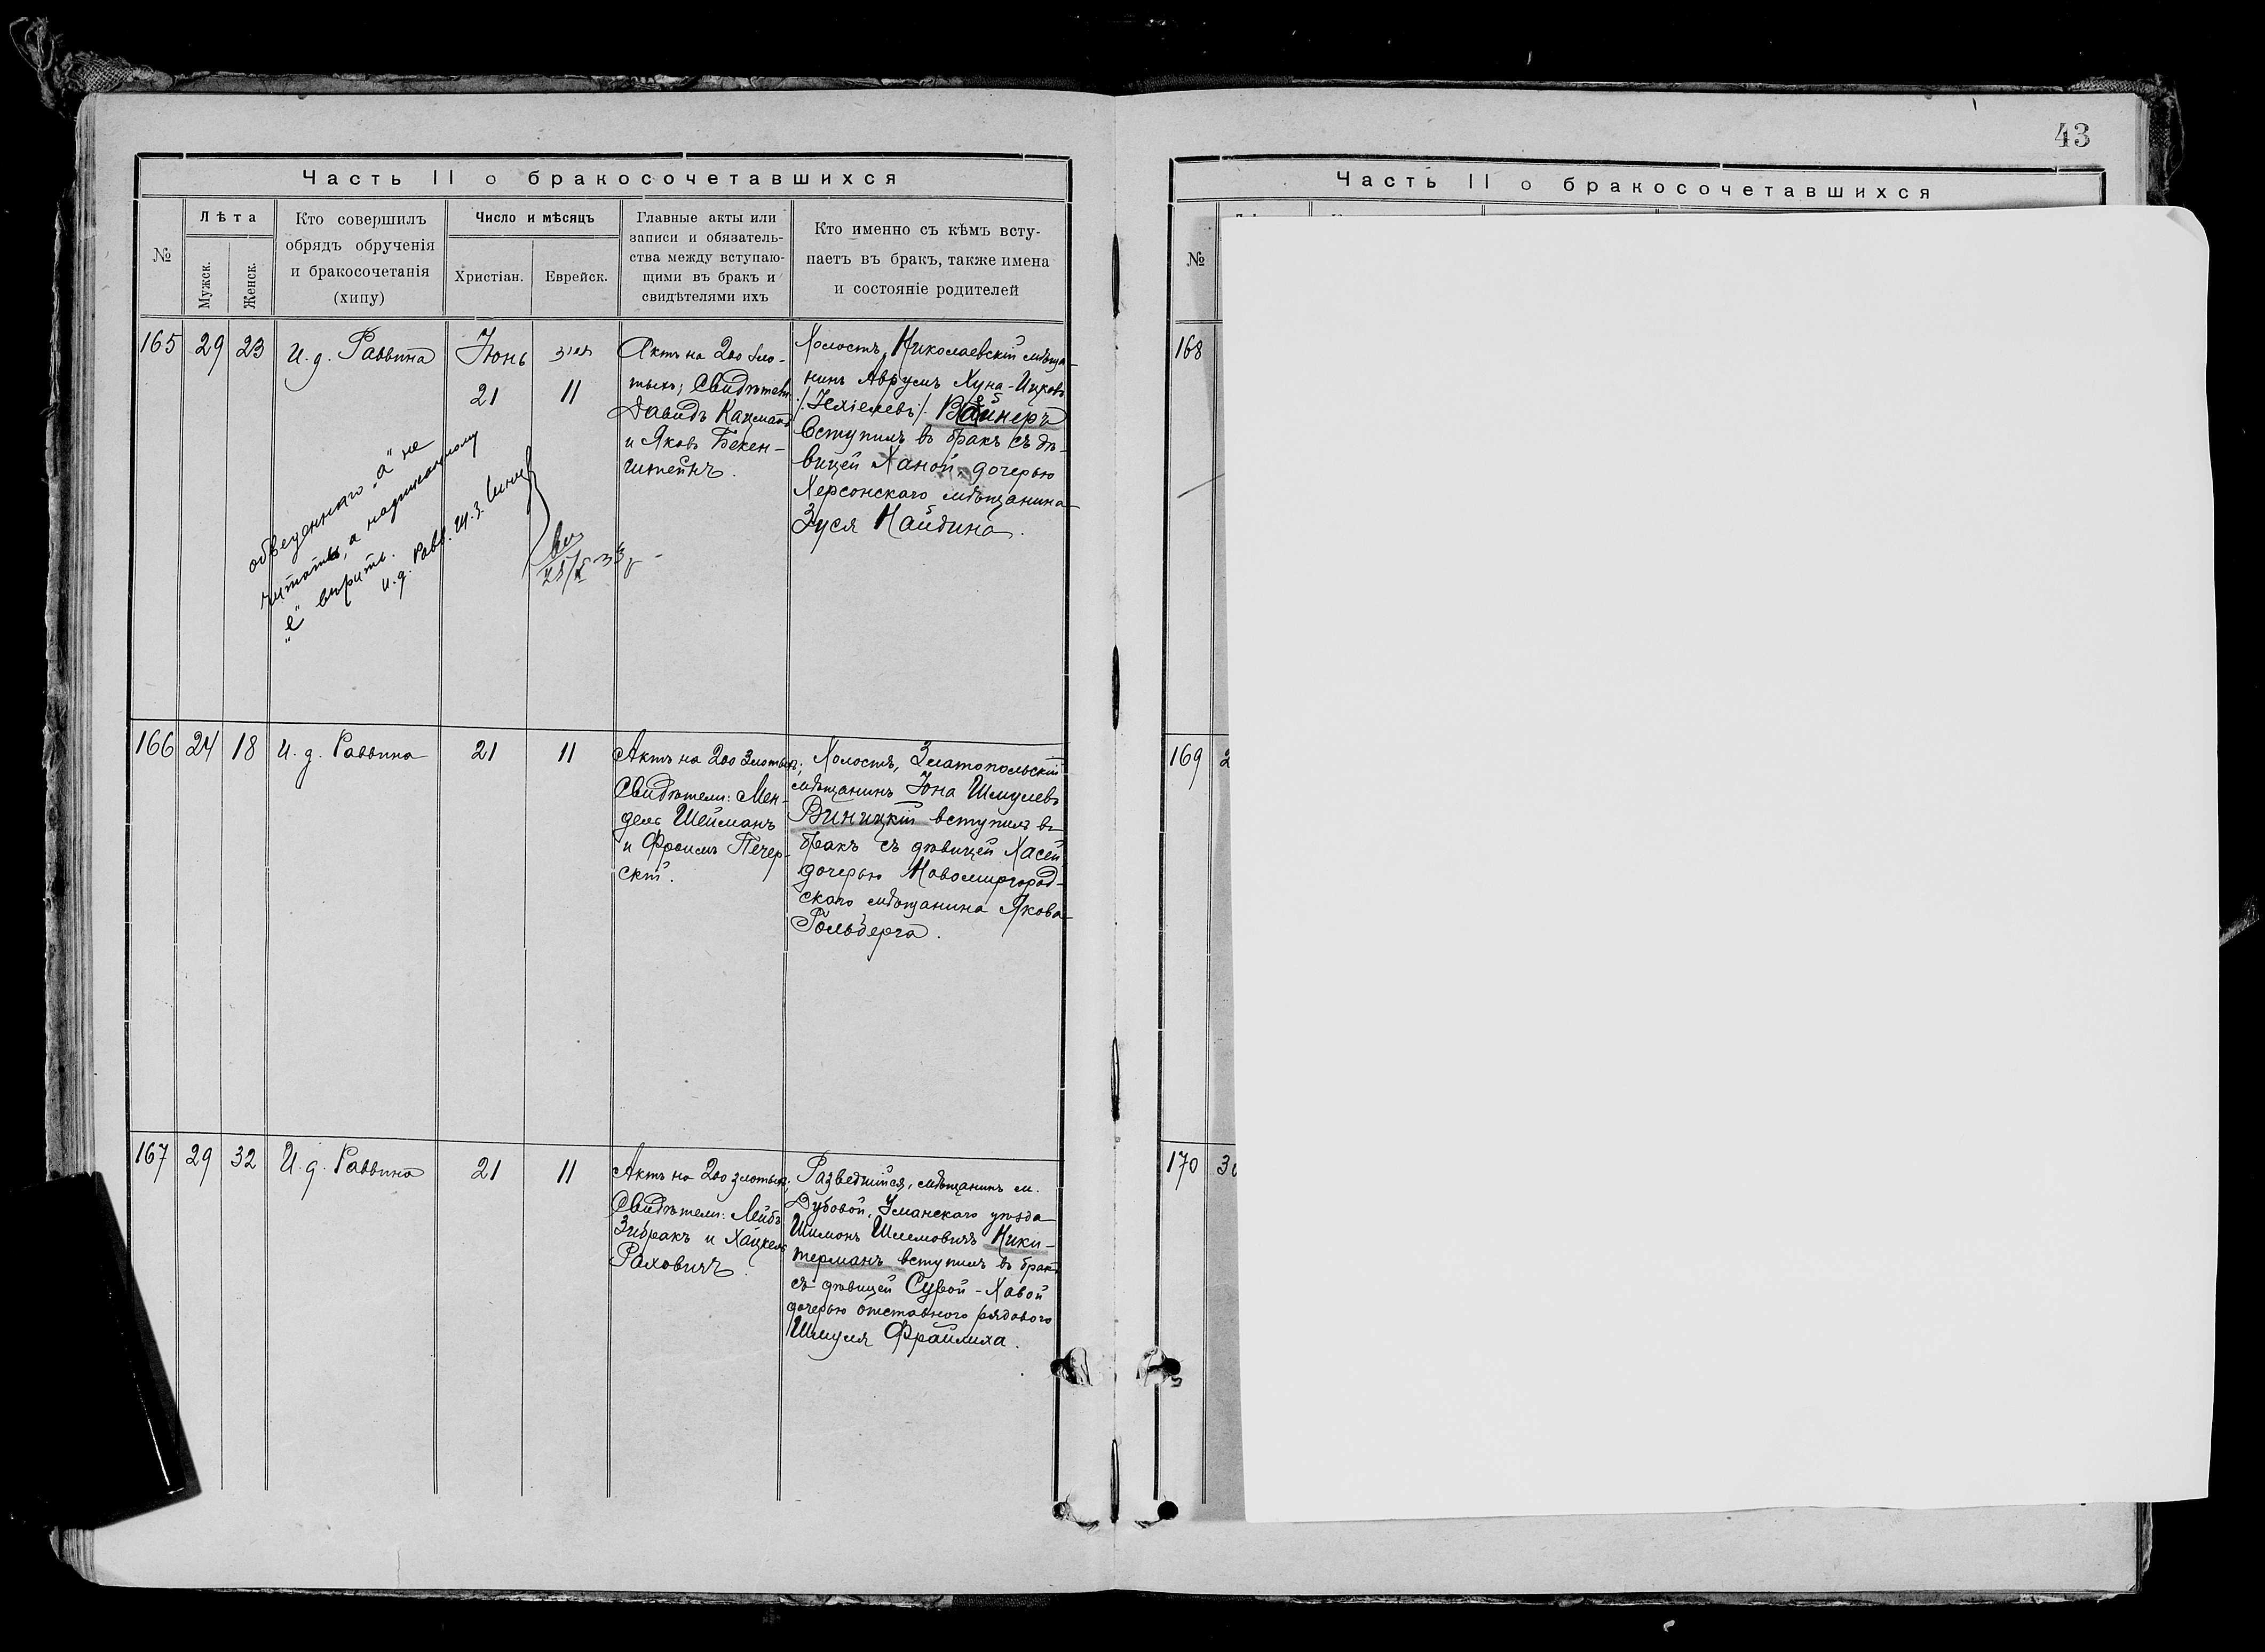 43
Часть II о бракосочетавшихся
№
Лѣта
Мужск.
Женск.
Кто совершилъ
обрядъ обрученія
и бракосочетанія
(хипу)
Число и мѣсяцъ
Христіан.
Еврейск.
Главные акты или
записи и обязатель-
ства между вступаю-
щими въ бракъ и
свидѣтелями ихъ
Кто именно съ кѣмъ всту-
паетъ въ бракъ, также имена
и состояніе родителей
165
29
23
И. д. Раввина
Іюнь
21
11
Актъ на 200 зло-
тыхъ; Свидѣтели:
Давидъ Кацманъ
и Яковъ Бекен-
штейнъ.
Холостъ, Николаевскій мѣща-
нинъ Аврумъ Хуна-Ицковъ
/:Іехіелевъ:/ Вайнеръ
вступилъ въ бракъ съ дѣ-
вицей Ханой, дочерью
Херсонскаго мѣщанина
Зуся Найдина.
обведеннаго „а" не
читать, а надписанному
„е" вѣрить.
И. д. Равв.
166
24
18
И. д. Раввина
21
11
Актъ на 200 злотыхъ;
Свидѣтели: Мен-
дель Шейманъ
и Фроимъ Печер-
скій.
Холостъ, Златопольскій
мѣщанинъ Іона Шмулевъ
Виницкій вступилъ въ
бракъ съ дѣвицей Хасей
дочерью Новомиргород-
скаго мѣщанина Якова
Гольберга.
167
29
32
И. д. Раввина
21
11
Актъ на 200 злотыхъ;
Свидѣтели: Лейбъ
Зибракъ и Хацкель
Раховичъ.
Разведшійся, мѣщанинъ м.
Дубовой, Уманскаго уѣзда
Шимонъ Шлемовичъ Ники-
терманъ вступилъ въ бракъ
съ дѣвицей Сурой-Хавой
дочерью отставного рядового
Шмуля Фрайлиха.
Часть II о бракосочетавшихся
№
168
169
2
170